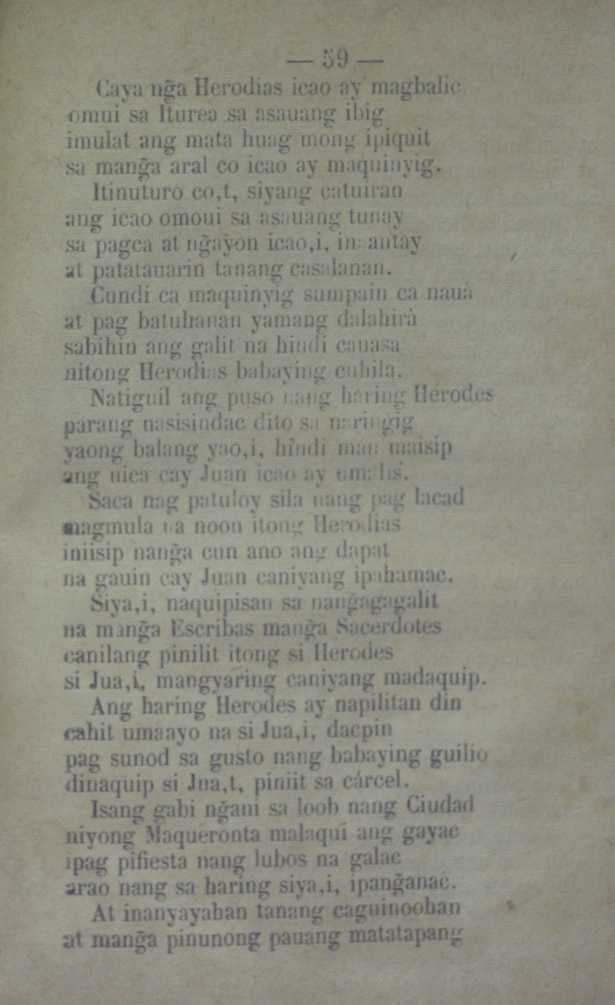 — 59 —
Caya ng̃a Herodias icao ay magbalic
omui sa Iturea sa asauang ibig
imulat ang mata huag mong ipiquit
sa mang̃a aral co icao ay maquinyig.
Itinuturo co,t, siyang catuiran
ang icao omoui sa asauang tunay
sa pagca at ng̃ayon icao,i, inaantay
at patatauarin tanang casalanan.
Cundi ca maquinyig sumpain ca nauà
at pag batuhanan yamang dalahirà
sabihin ang galit na hindi cauasa
nitong Herodias babaying cuhila.
Natiguil ang puso nang haring Herodes
parang nasisindac dito sa naringig
yaong balang yao,i, hindi man maisip
ang uica cay Juan icao ay umalis.
Saca nag patuloy sila nang pag lacad
magmula na noon itong Herodias
iniisip nang̃a cun ano ang dapat
na gauin cay Juan caniyang ipahamac.
Siya,i, naquipisan sa nang̃agagalit
na mang̃a Escribas mang̃a Sacerdotes
canilang pinilit itong si Herodes
si Jua,i, mangyaring caniyang madaquip.
Ang haring Herodes ay napilitan din
cahit umaayo na si Jua,i, dacpin
pag sunod sa gusto nang babaying guilio
dinaquip si Jua,t, piniit sa cárcel.
Isang gabi ng̃ani sa loob nang Ciudad
niyong Maqueronta malaqui ang gayac
ipag pifiesta nang lubos na galac
arao nang sa haring siya,i, ipang̃anac.
At inanyayahan tanang caguinoohan
at mang̃a pinunong pauang matatapang